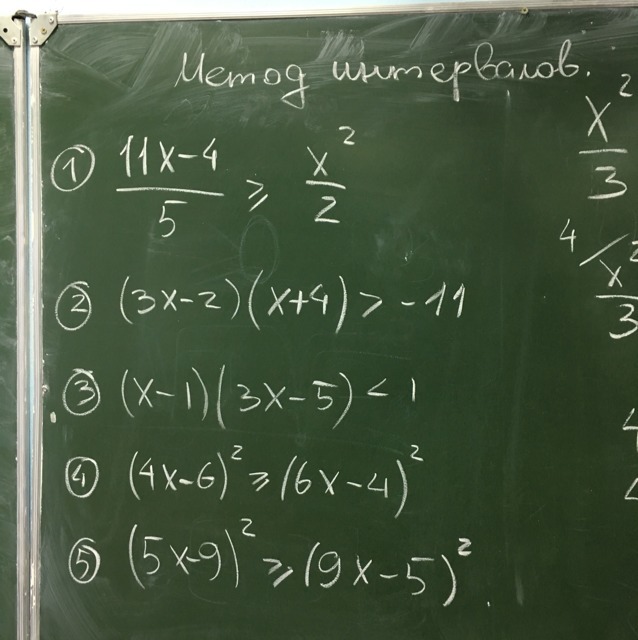 Метод интервалов.
① (11x-4)/5 ⩾ x²/2
② (3x-2)(x+4) > -11
③ (x-1)(3x-5) < 1
④ (4x-6)² ⩾ (6x-4)²
⑤ (5x-9)² ⩾ (9x-5)².
x²/3
4/ x²/3
4